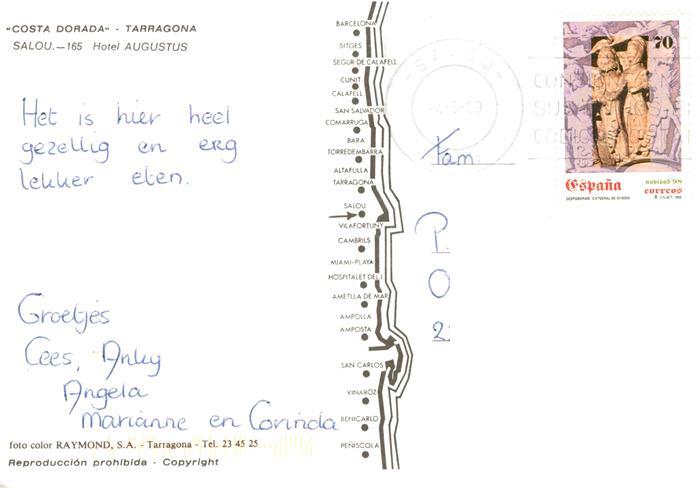 «COSTA DORADA» - TARRAGONA
SALOU.—165 Hotel AUGUSTUS
Het is hier heel
gezellig en erg
lekker eten.
Groetjes
Cees, Anky
Angela
Marianne en Corinda
foto color RAYMOND, S.A. - Tarragona - Tel. 23 45 25
Reproducción prohibida - Copyright
BARCELONA
SITGES
SEGUR DE CALAFELL
CUNIT
CALAFELL
SAN SALVADOR
COMARRUGA
BARA
TORREDEMBARRA
ALTAFULLA
TARRAGONA
SALOU
VILAFORTUNY
CAMBRILS
MIAMI-PLAYA
HOSPITALET DEL I.
AMETLLA DE MAR
AMPOLLA
AMPOSTA
SAN CARLOS
VINAROZ
BENICARLO
PEÑISCOLA
SALOU
70
España
navidad '98
correos
DESPOSORIOS CATEDRAL DE OVIEDO
Fam:
P.
O
2